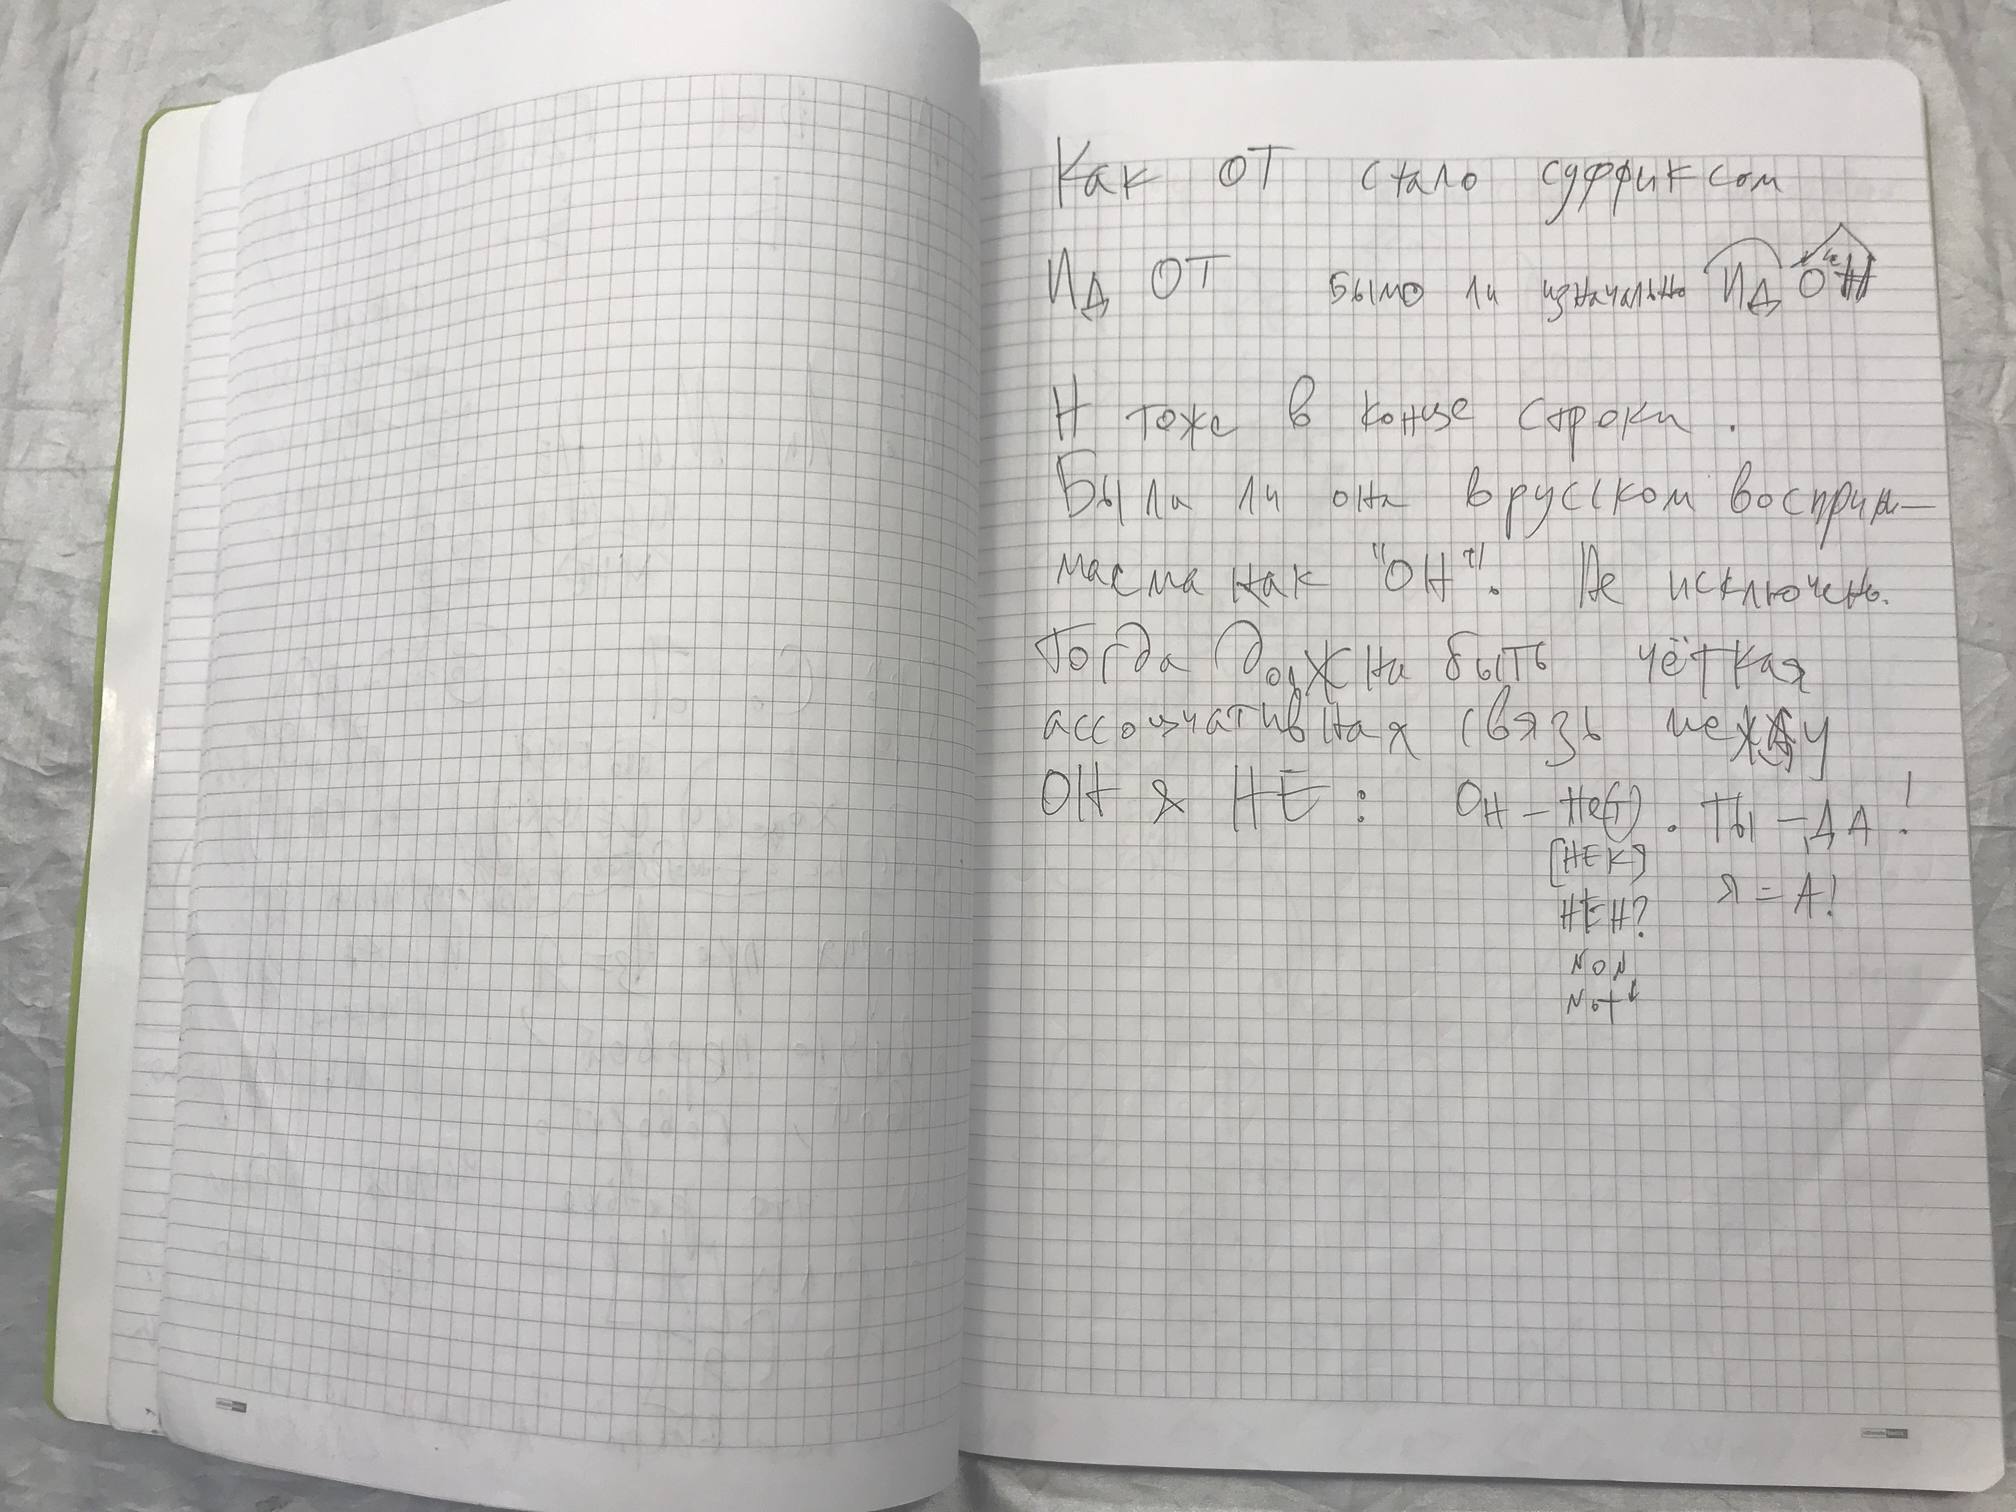 Как ОТ стало суффиксом
ИД ОТ было ли изначально ИД ОН
Н тоже в конце строки.
Была ли она в русском восприни-
маема как "ОН". Не исключено.
Тогда должна быть чёткая
ассоциативная связь между
ОН & НЕ: ОН – не(т). ТЫ – ДА!
[НЕК]
Я = А!
НЕН?
NON
Not